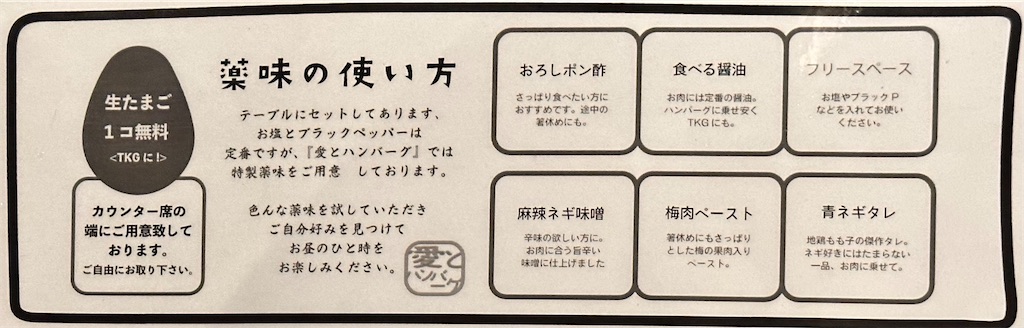 生たまご
1コ無料
<TKGに!>
カウンター席の
端にご用意致して
おります。
ご自由にお取り下さい。
薬味の使い方
テーブルにセットしてあります、
お塩とブラックペッパーは
定番ですが、『愛とハンバーグ』では
特製薬味をご用意　しております。
色んな薬味を試していただき
ご自分好みを見つけて
お昼のひと時を
お楽しみください。
愛と
ハンバ
ーグ
おろしポン酢
さっぱり食べたい方に
おすすめです。途中の
箸休めにも。
食べる醤油
お肉には定番の醤油。
ハンバーグに乗せ安く
TKGにも。
フリースペース
お塩やブラックP
などを入れてお使い
ください。
麻辣ネギ味噌
辛味の欲しい方に。
お肉に合う旨辛い
味噌に仕上げました
梅肉ペースト
箸休めにもさっぱり
とした梅の果肉入り
ペースト。
青ネギタレ
地鶏もも子の傑作タレ。
ネギ好きにはたまらない
一品、お肉に乗せて。